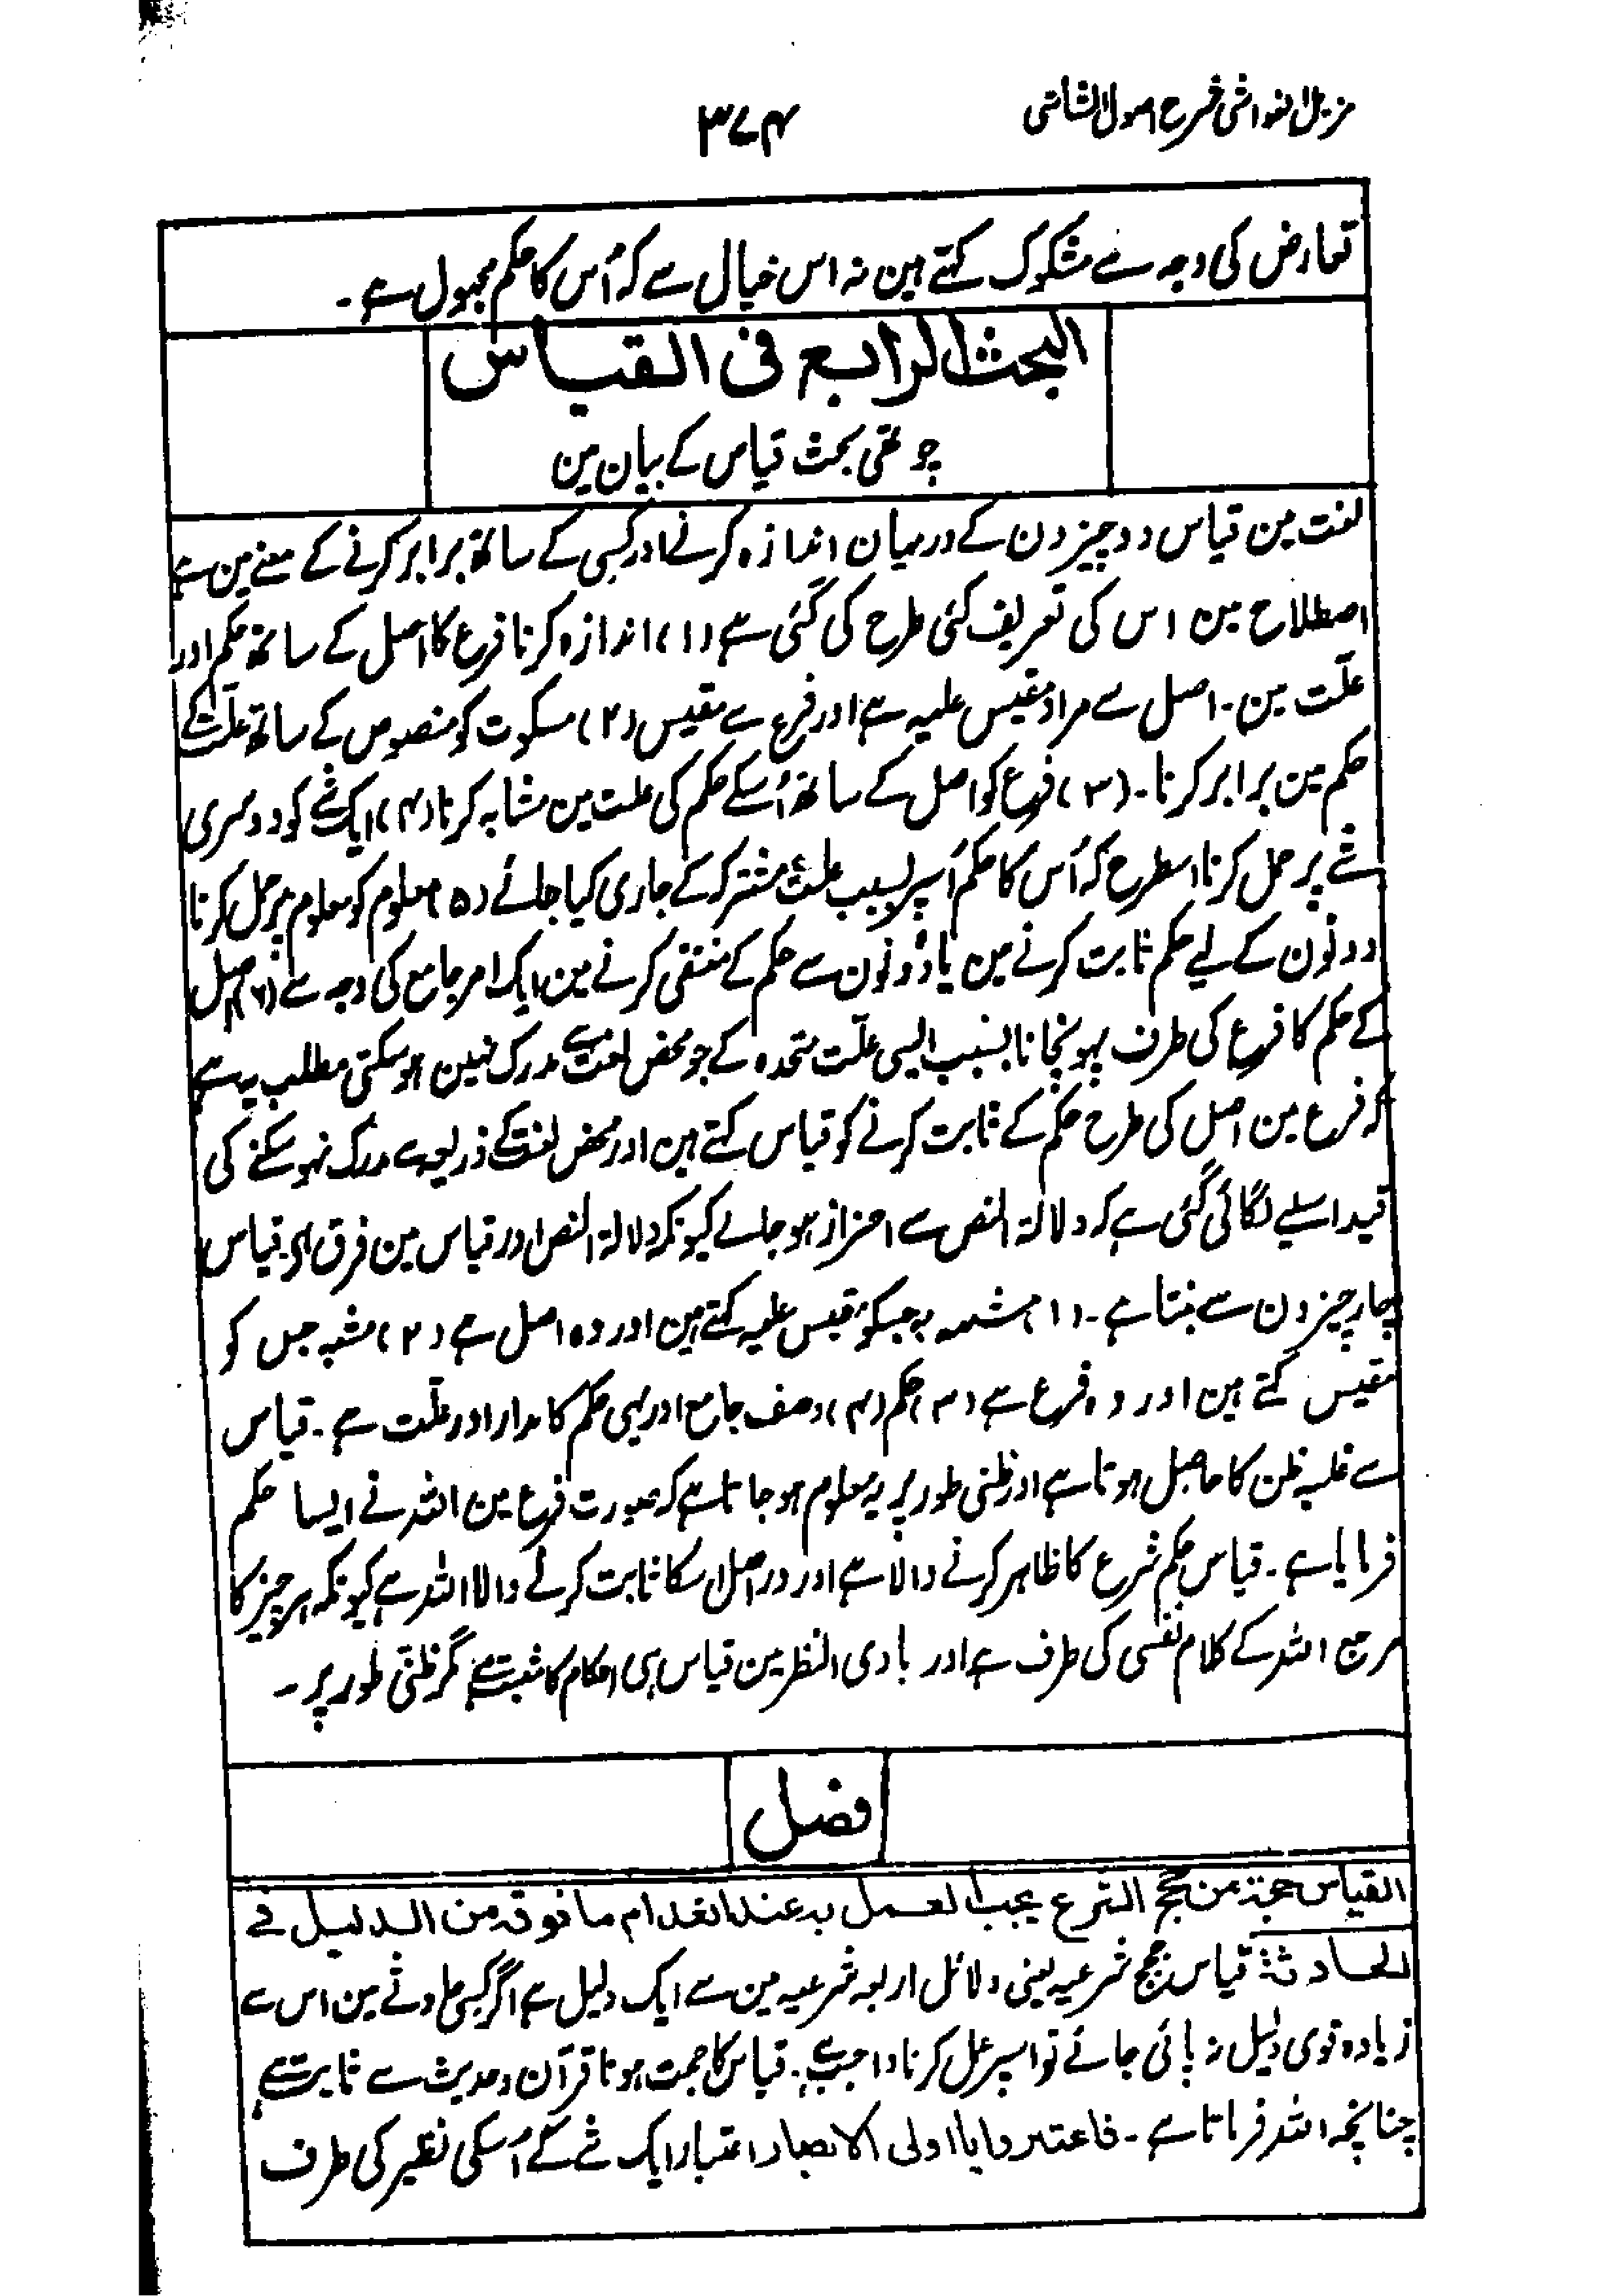 مزیل الغواشی شرح اصول الشاشی
۳۷۴
تعارض کی وجہ سے مشکوک کہتے ہین نہ اس خیال سے کہ اُس کا حکم مجہول ہے۔
البحث الرابع فی القیاس
چوتھی بحث قیاس کے بیان مین
لغت مین قیاس دو چیزون کے درمیان اندازہ کرنے اور کسی کے ساتھ برابر کرنے کے معنے مین ہے
اصطلاح مین اس کی تعریف کئی طرح کی گئی ہے (۱) اندازہ کرنا فرع کا اصل کے ساتھ حکم اور
علّت مین۔ اصل سے مراد مقیس علیہ ہے اور فرع سے مقیس (۲) سکوت کو منصوص کے ساتھ علّت کے
حکم مین برابر کرنا۔ (۳) فرع کو اصل کے ساتھ اُسکے حکم کی علت مین مشابہ کرنا (۴) ایک شے کو دوسری
شے پر حمل کرنا اسطرح کہ اُس کا حکم اُسپر بسبب علت مشترکہ کے جاری کیا جائے (۵) معلوم کو معلوم پر حمل کرنا
دونون کے لیے حکم ثابت کرنے مین یا دونون سے حکم کے منتفی کرنے مین ایک امر جامع کی وجہ سے (۶) اصل
کے حکم کا فرع کی طرف پہونچانا بسبب ایسی علّت متحدہ کے جو محض لغت سے مدرک نہین ہو سکتی مطلب یہ ہے
کہ فرع مین اصل کی طرح حکم کے ثابت کرنے کو قیاس کہتے ہین اور محض لغت کے ذریعہ سے مدرک نہو سکنے کی
قید اسلیے لگائی گئی ہے کہ دلالۃ النص سے احتراز ہو جائے کیونکہ دلالۃ النص اور قیاس مین فرق ہی۔ قیاس
چار چیزون سے بنتا ہے۔ (۱) مشبہ بہ جسکو مقیس علیہ کہتے ہین اور وہ اصل ہے (۲) مشبہ جس کو
مقیس کہتے ہین اور وہ فرع ہے (۳) حکم (۴) وصف جامع اور یہی حکم کا مدار اور علّت ہے۔ قیاس
سے غلبہ ظن کا حاصل ہوتا ہے اور ظنی طور پر یہ معلوم ہو جاتا ہے کہ صورت فرع مین اللہ نے ایسا حکم
فرمایا ہے۔ قیاس حکم شرع کا ظاہر کرنے والا ہے اور در اصل اسکا ثابت کرنے والا اللہ ہے کیونکہ ہر چیز کا
مرجع اللہ کے کلام نفسی کی طرف ہے اور بادی النظر مین قیاس ہی احکام کا مثبت ہے مگر ظنی طور پر۔
فصل
القیاس حجۃ من حجج الشرع یجب العمل بہ عند انعدام ما فوقہ من الدلیل فے
الحادثۃ قیاس حجج شرعیہ یعنی دلائل اربعہ شرعیہ مین سے ایک دلیل ہے اگر کسی حادثے مین اس سے
زیادہ قوی دلیل نہ پائی جائے تو اسپر عمل کرنا واجب ہے۔ قیاس کا حجت ہونا قرآن و حدیث سے ثابت ہے
چنانچہ اللہ فرماتا ہے۔ فاعتبروا یا اولی الابصار اعتبار ایک شے کے اُسکی نظیر کی طرف